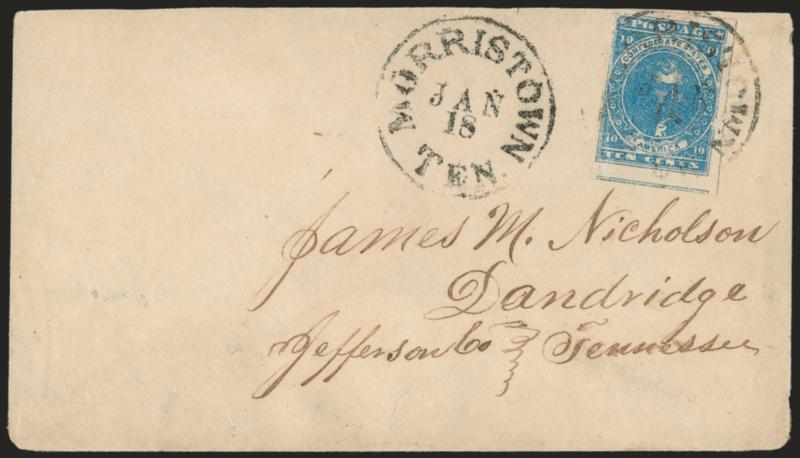 MORRISTOWN
JAN
18
TEN.
POSTAGE
10 10
CONFEDERATE STATES
OF AMERICA
10 10
TEN CENTS
James M. Nicholson
Dandridge
Jefferson Co Tennessee